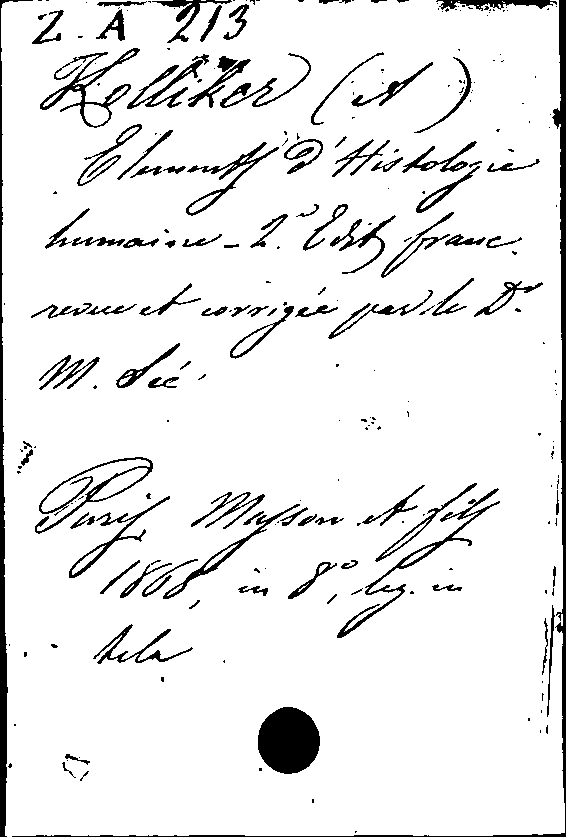 Z. A 213
Kölliker (A)
Elements d'Histologie
humaine - 2.e Edit franc.
revue et corrigée par le Dr.
M. Sée.
Paris, Masson et fils
1868, in 8°, leg. in
tela